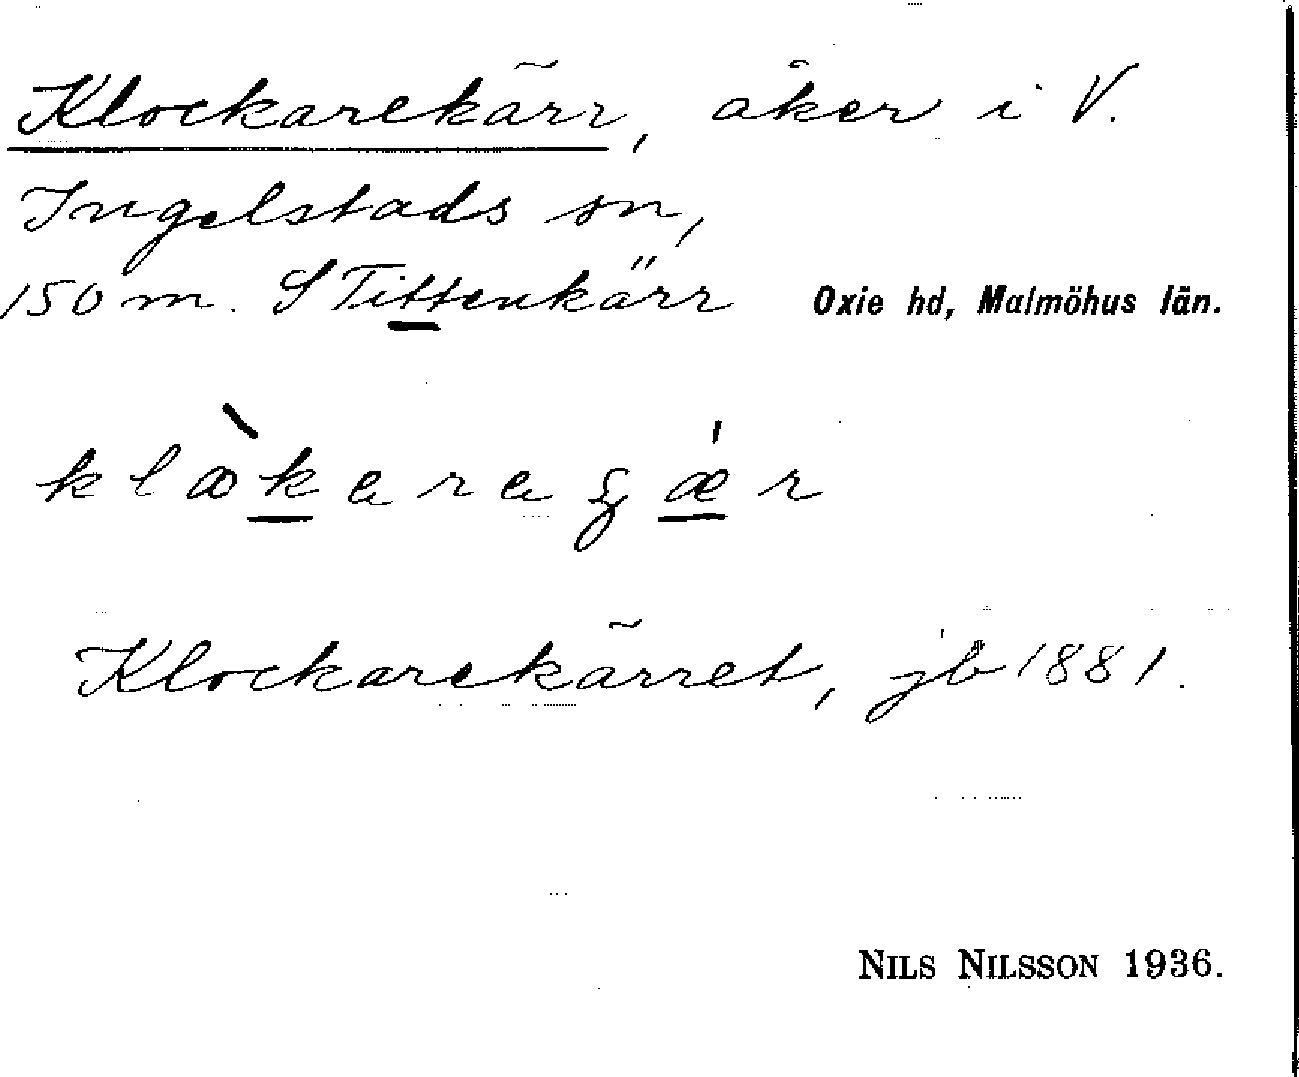 Klockarekärr, åker i V.
Ingelstads sn,
150 m. S Tittenkärr Oxie hd, Malmöhus län.
Klockarekärret, jb 1881.
NILS NILSSON 1936.